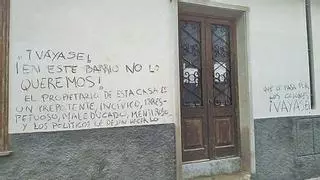 ¡VÁYASE!
¡EN ESTE BARRIO NO LO
QUEREMOS!
EL PROPIETARIO DE ESTA CASA ES
UN PREPOTENTE, INCÍVICO, IRRES-
PETUOSO, MALEDUCADO, MENTIROSO
Y LOS POLÍTICOS LE DEJAN HACERLO
QUE SE PASA POR
LOS COJONES
¡VÁYASE!